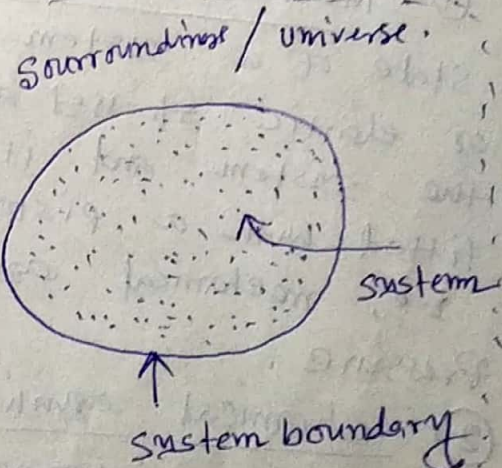 Sourroundings / universe.
system
system boundary.